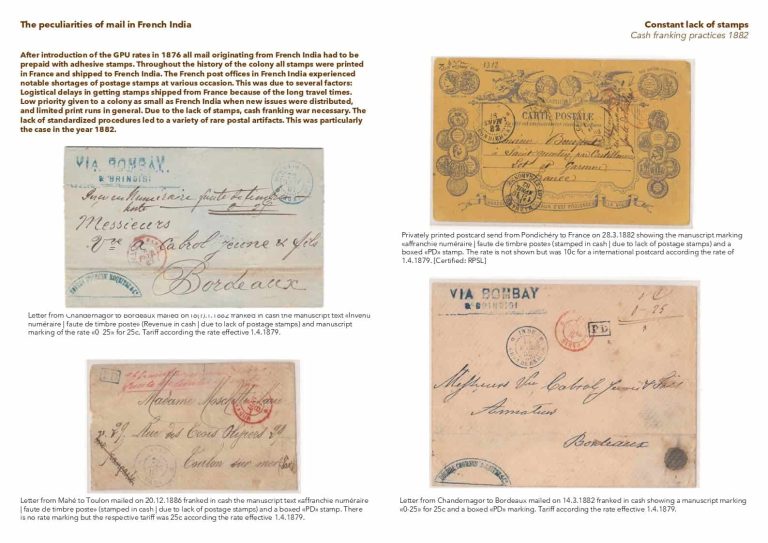 The peculiarities of mail in French India
Constant lack of stamps
Cash franking practices 1882
After introduction of the GPU rates in 1876 all mail originating from French India had to be
prepaid with adhesive stamps. Throughout the history of the colony all stamps were printed
in France and shipped to French India. The French post offices in French India experienced
notable shortages of postage stamps at various occasion. This was due to several factors:
Logistical delays in getting stamps shipped from France because of the long travel times.
Low priority given to a colony as small as French India when new issues were distributed,
and limited print runs in general. Due to the lack of stamps, cash franking war necessary. The
lack of standardized procedures led to a variety of rare postal artifacts. This was particularly
the case in the year 1882.
VIA BOMBAY
& BRINDISI
Messieurs
Vve a Cabrol jeune & fils
Bordeaux
Letter from Chandernagor to Bordeaux mailed on
1882 franked in cash the manuscript text «Invenu
numéraire | faute de timbre poste» (Revenue in cash | due to lack of postage stamps) and manuscript
marking of the rate «0 25» for 25c. Tariff according the rate effective 1.4.1879.
PD
Madame
Rue des Trois Oliviers 29
Toulon sur mer
Letter from Mahé to Toulon mailed on 20.12.1886 franked in cash the manuscript text «affranchie numéraire
| faute de timbre poste» (stamped in cash | due to lack of postage stamps) and a boxed «PD» stamp. There
is no rate marking but the respective tariff was 25c according the rate effective 1.4.1879.
1312
CARTE POSTALE
Monsieur
Lot & Garonne
France
Privately printed postcard send from Pondichéry to France on 28.3.1882 showing the manuscript marking
«affranchie numéraire | faute de timbre poste» (stamped in cash | due to lack of postage stamps) and a
boxed «PD» stamp. The rate is not shown but was 10c for a international postcard according the rate of
1.4.1879. [Certified: RPSL]
VIA BOMBAY
& BRINDISI
0-25
INDE
PD
Messieurs Vve Cabrol Jeune & Fils
Armateurs
Bordeaux
Letter from Chandernagor to Bordeaux mailed on 14.3.1882 franked in cash showing a manuscript marking
«0-25» for 25c and a boxed «PD» marking. Tariff according the rate effective 1.4.1879.